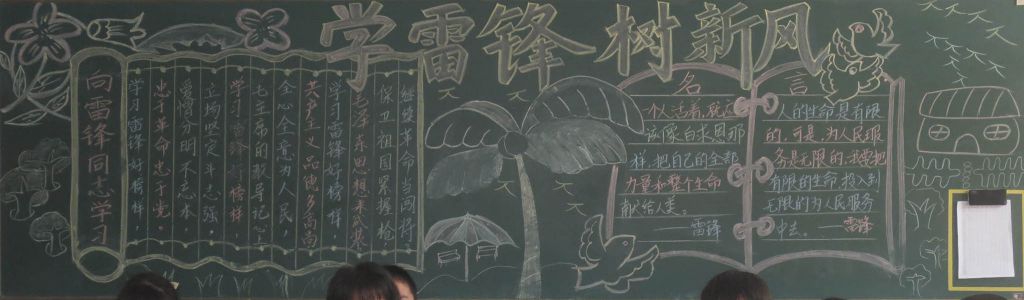 学雷锋 树新风
向雷锋同志学习
学习雷锋好榜样,
忠于革命忠于党。
爱憎分明不忘本,
立场坚定斗志强。
学习雷锋好榜样
毛主席的教导记心上
全心全意为人民,
共产主义品德多高尚
学习雷锋好榜样,
毛泽东思想来武装
保卫祖国紧握枪,
继续革命当闯将
名言
一个人活着,就应
该像白求恩那
样,把自己的全部
力量和整个生命
献给人类。
——雷锋
人的生命是有限
的,可是,为人民服
务是无限的,我要把
有限的生命,投入到
无限的为人民服务
中去。——雷锋